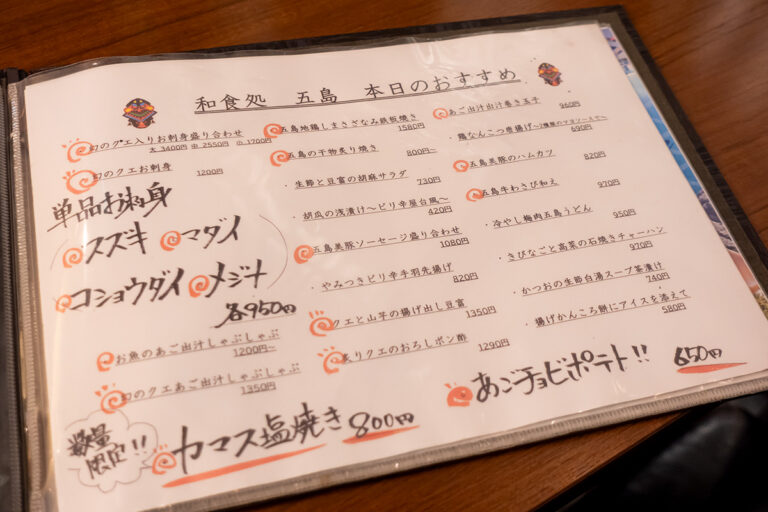 和食処 五島 本日のおすすめ
幻のクエ入りお刺身盛り合わせ
大 3400円 中 2550円 小 1700円
幻のクエお刺身 1200円
単品お刺身
スズキ マダイ
コショウダイ メジナ
各950円
お魚のあご出汁しゃぶしゃぶ
1200円~
幻のクエあご出汁しゃぶしゃぶ
1350円
数量
限定!!
カマス塩焼き 800円
五島地鶏しまさざなみ鉄板焼き
1580円
五島の干物炙り焼き 800円~
・生節と豆富の胡麻サラダ
730円
・胡瓜の浅漬け~ピリ辛屋台風~
420円
五島美豚ソーセージ盛り合わせ
1080円
・やみつきピリ辛手羽先揚げ
820円
クエと山芋の揚げ出し豆富
1350円
炙りクエのおろしポン酢 1290円
あご出汁出汁巻き玉子 960円
・鶏なんこつ唐揚げ~2種類のマヨソースで~
690円
五島美豚のハムカツ 820円
五島牛わさび和え 970円
・冷やし梅肉五島うどん 950円
・きびなごと高菜の石焼きチャーハン
970円
・かつおの生節白湯スープ茶漬け
740円
・揚げかんころ餅にアイスを添えて
580円
あごチョビポテト!! 650円